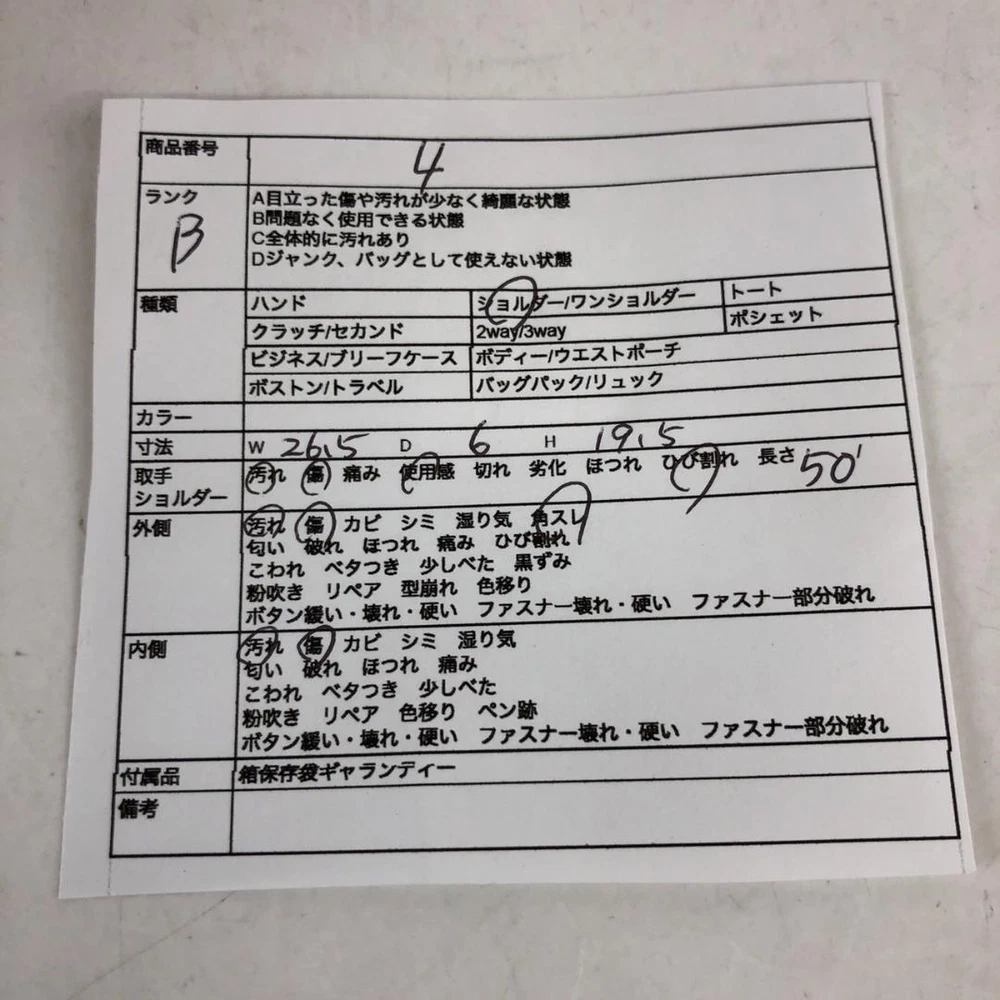 商品番号 4
ランク B
A目立った傷や汚れが少なく綺麗な状態
B問題なく使用できる状態
C全体的に汚れあり
Dジャンク、バッグとして使えない状態
種類 ハンド ショルダー/ワンショルダー トート
クラッチ/セカンド 2way/3way ポシェット
ビジネス/ブリーフケース ボディー/ウエストポーチ
ボストン/トラベル バッグパック/リュック
カラー
寸法 W 26.5 D 6 H 19.5
取手 汚れ 傷 痛み 使用感 切れ 劣化 ほつれ ひび割れ 長さ 50
ショルダー
外側 汚れ 傷 カビ シミ 湿り気 角スレ
匂い 破れ ほつれ 痛み ひび割れ
こわれ ベタつき 少しべた 黒ずみ
粉吹き リペア 型崩れ 色移り
ボタン緩い・壊れ・硬い ファスナー壊れ・硬い ファスナー部分破れ
内側 汚れ 傷 カビ シミ 湿り気
匂い 破れ ほつれ 痛み
こわれ ベタつき 少しべた
粉吹き リペア 色移り ペン跡
ボタン緩い・壊れ・硬い ファスナー壊れ・硬い ファスナー部分破れ
付属品 箱保存袋ギャランディー
備考